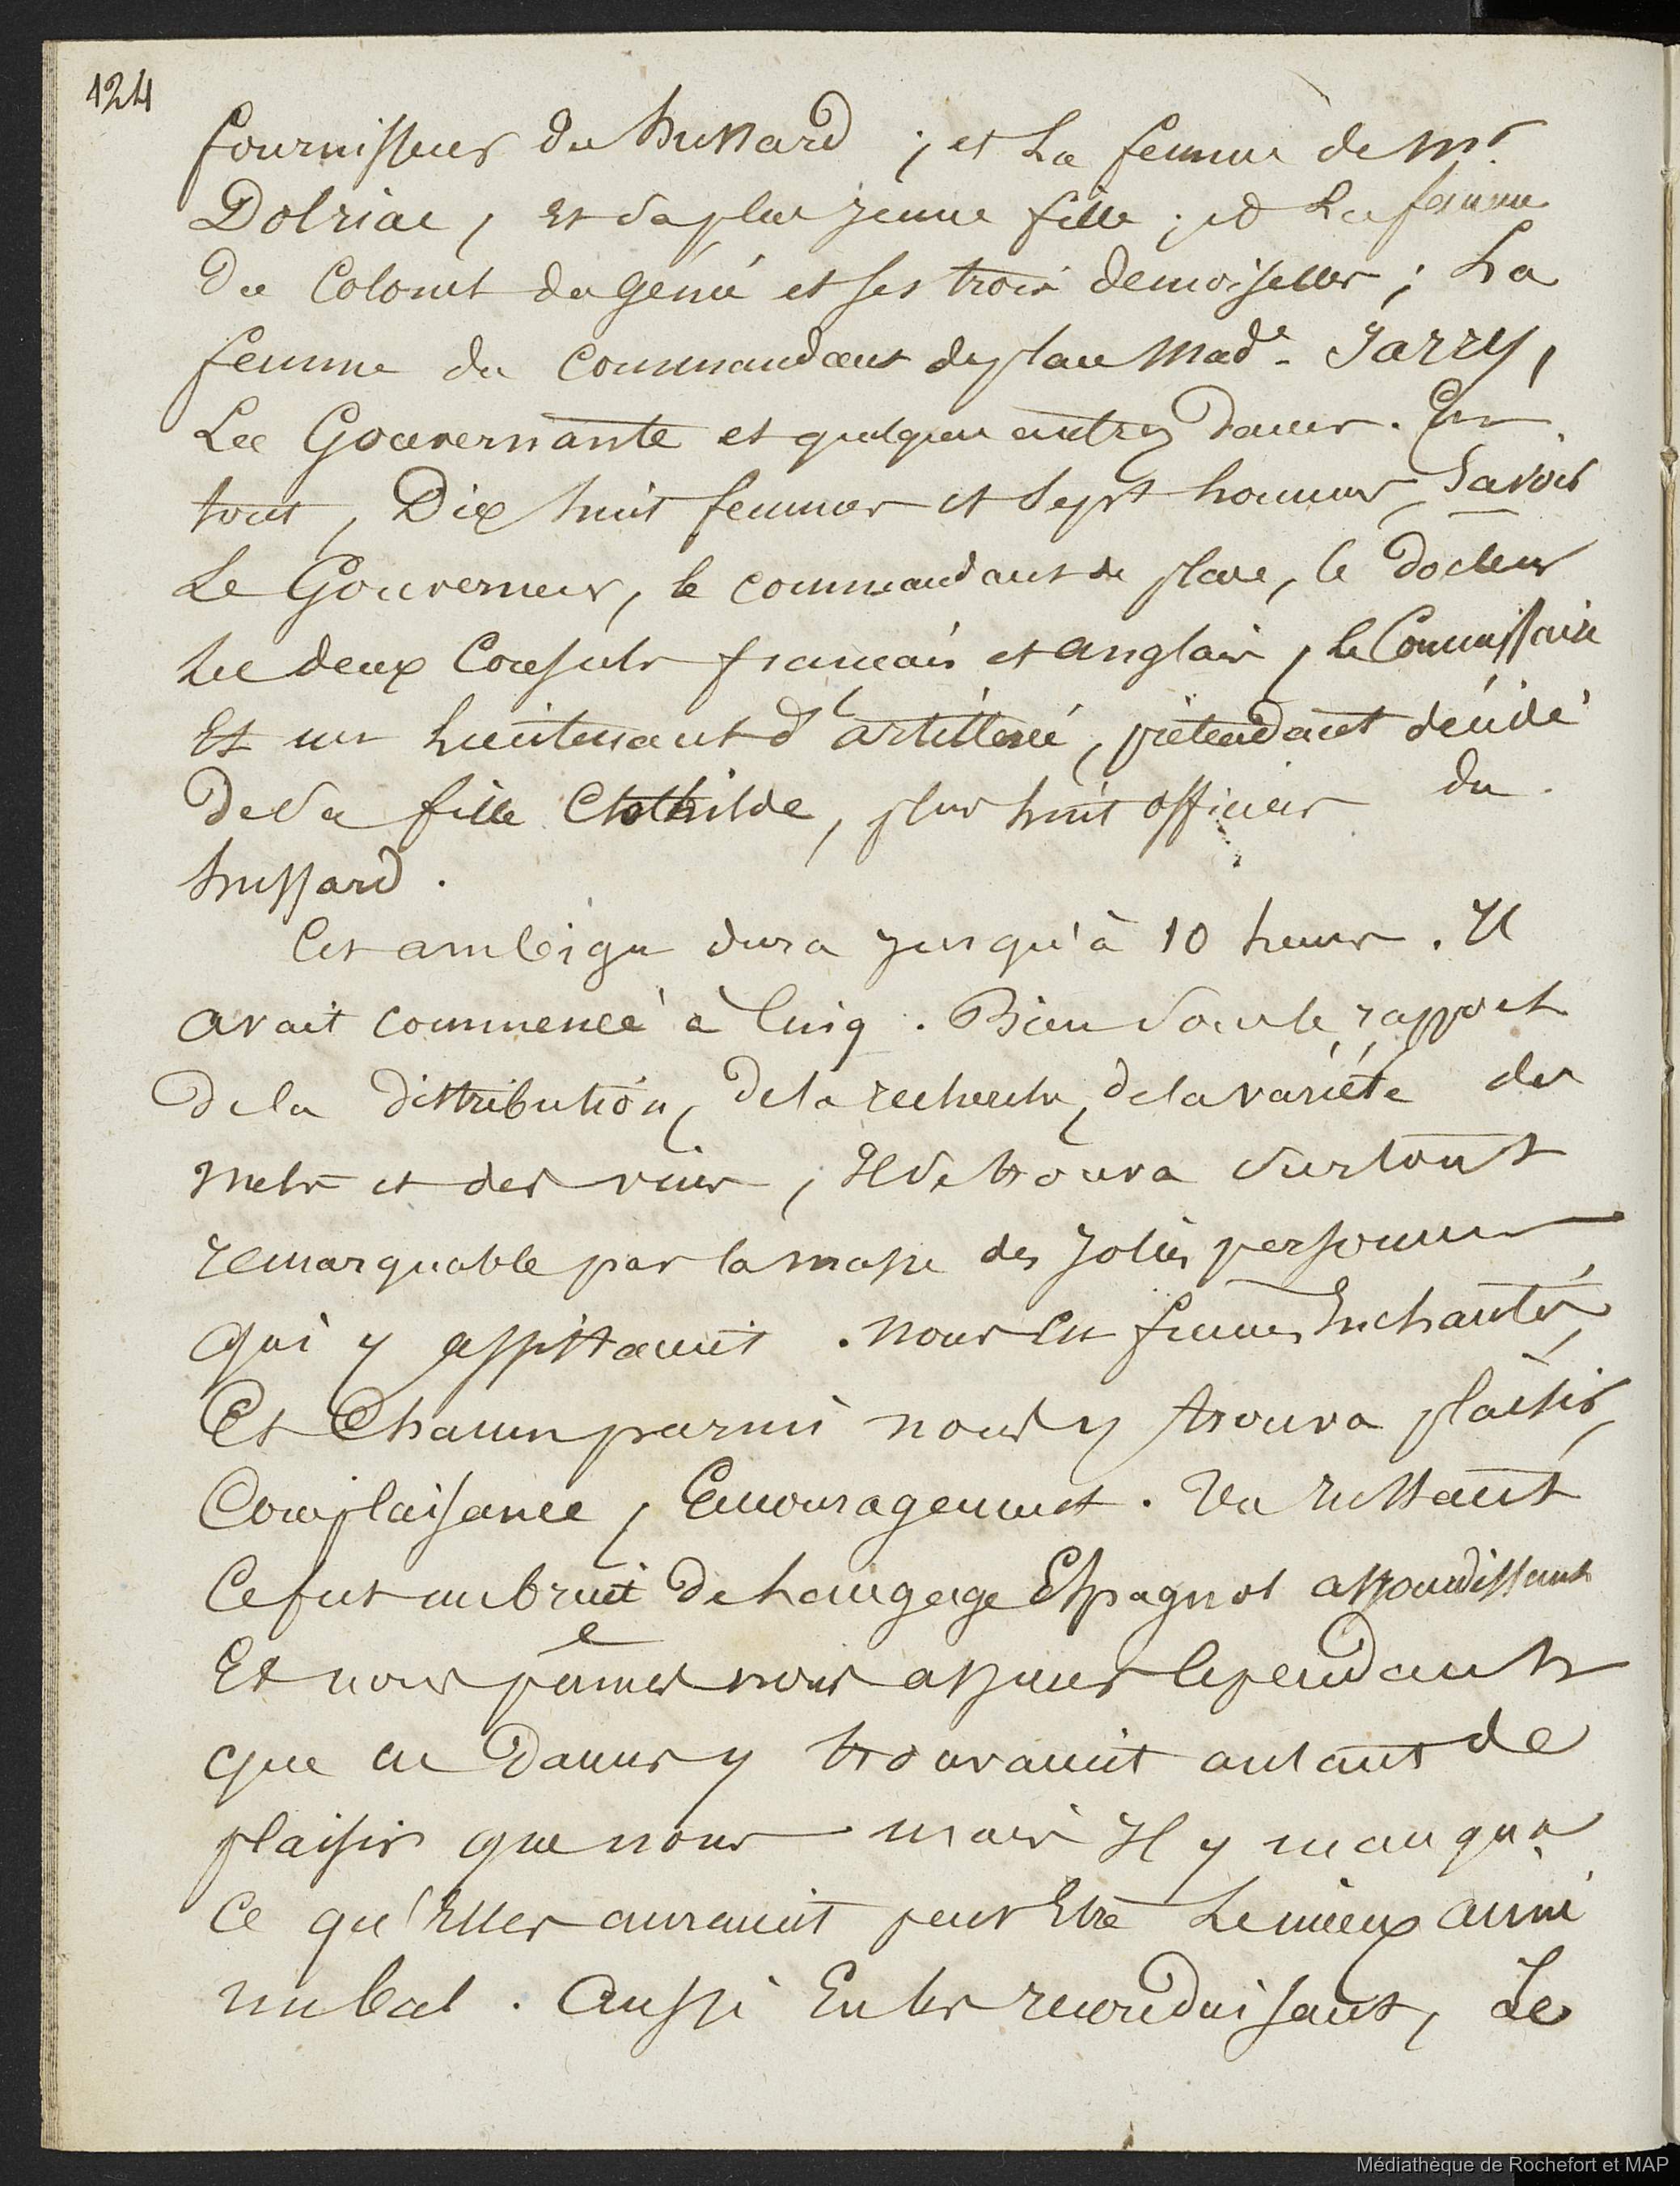 124
fournisseur du hussard ; et La femme de Mr.
Dolriac, et sa plus jeune fille ; et La femme
Du Colonel du génie et ses trois demoiselles ; La
femme du Commandant de place Made. Jarry,
La Gouvernante et quelques autres Dames. En
tout, Dix huit femmes et sept hommes, Savoir
Le Gouverneur, le commandant de place, le Docteur
Les deux Consuls francais et anglais, le Commissaire
Et un Lieutenant d'artillerie, prétendant décidé
De sa fille Clothilde, plus huit officiers du
hussard.
Cet ambigu dura jusqu'à 10 heures. Il
avait commencé à Cinq. Bien sous le rapport
De la distribution, De la recherche, de la variété des
mets et des vins, Il se trouva surtout
remarquable par la masse des jolies personnes
qui y assistaient. Nous en fumes Enchantés,
Et Chacun parmi nous y trouva plaisir,
Complaisance, Encouragement. Un instant
Ce fut un bruit De Langage Espagnol assourdissant
Et nous pûmes nous assurer Cependant
que ces Dames y trouvaient autant de
plaisir que nous mais Il y manqua
Ce qu'Elles auraient peut Etre Le mieux aimé
un bal. Aussi En les reconduisant, Le
Médiathèque de Rochefort et MAP